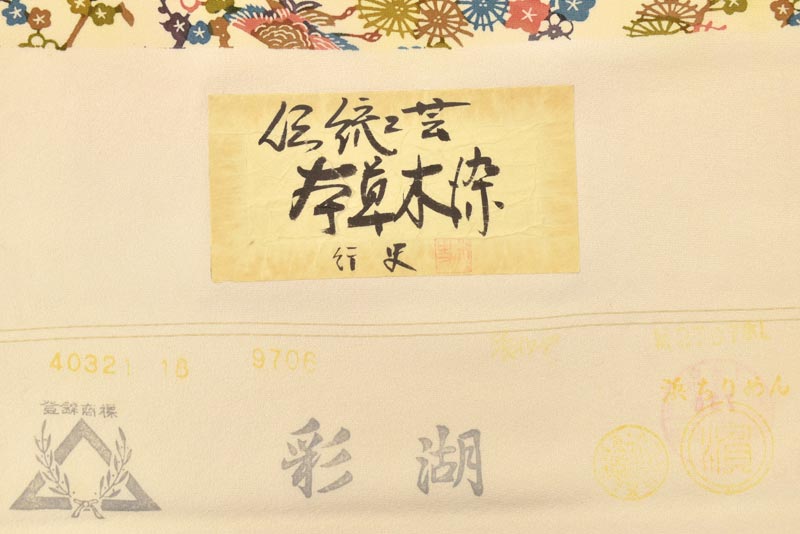 伝統工芸
本草木染
行史
40321 18
9706
浜ちりめん
登録商標
彩湖